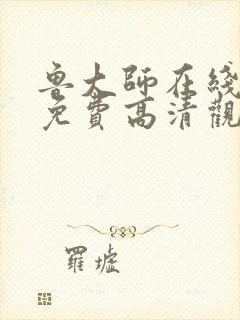 鲁大師在綫
免費高清觀
羅墟